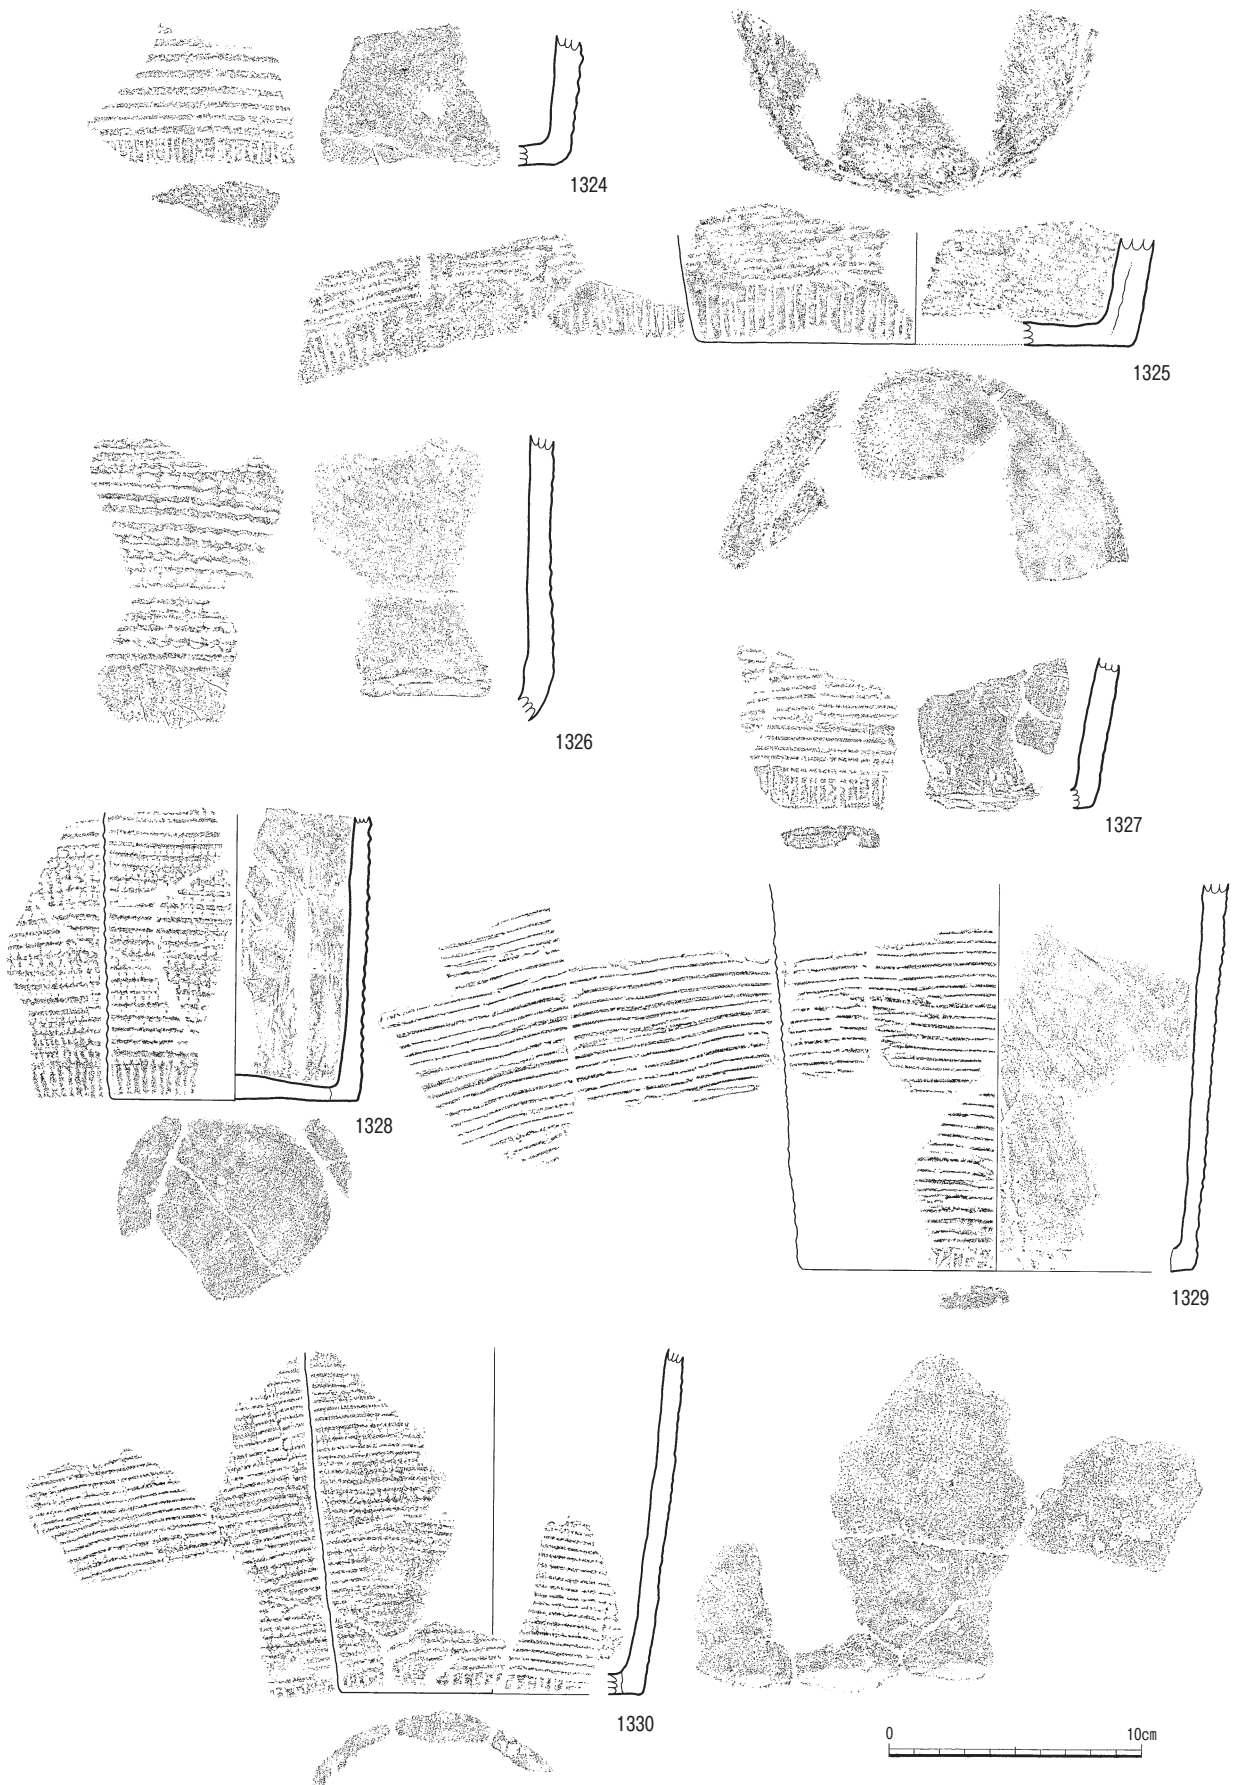 1324
1325
1326
1327
1328
1329
1330
0 10cm